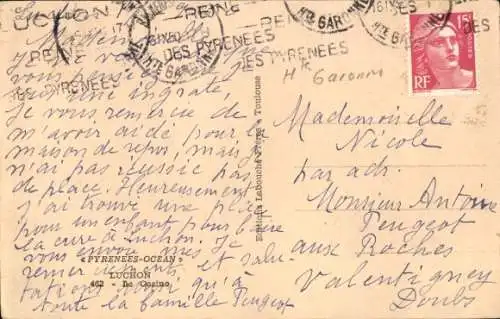 LUCHON
REINE
DES PYRENEES
REINE
DES PYRENEES
Hte GARONNE
Hte GARONNE
15F
RF
Hte Garonne
Je vous
vous
ingrate,
Je vous remercie de
m'avoir aidé pour la
maison de repos, mais je
n'ai pas réussie pas
de place. Heureusement
j'ai trouvé une place
pour un enfant pour faire
la cure à Luchon. Je
vous envoie mes
remerciements et salu-
tations ainsi qu'à
toute la famille Peugeot
«PYRENEES-OCEAN»
LUCHON
462 - Le Casino
Editions Labouche Frères, Toulouse
Mademoiselle
Nicole
par adr.
Monsieur Antoine
Peugeot
aux Roches
Valentigney
Doubs